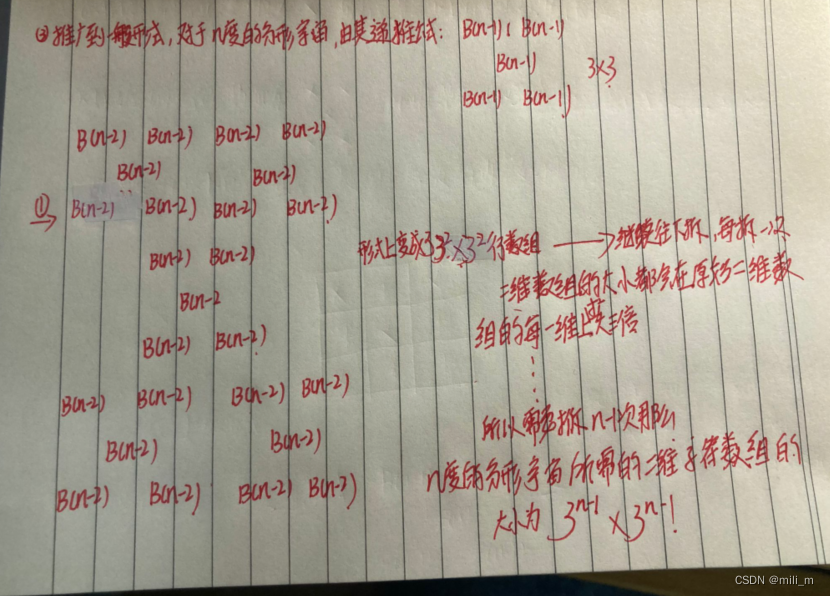 ②推广到一般形式,对于n度的分形宇宙,由其递推公式: B(n-1) B(n-1)
B(n-1) 3×3
B(n-1) B(n-1)
B(n-2) B(n-2) B(n-2) B(n-2)
B(n-2) B(n-2)
① B(n-2) B(n-2) B(n-2) B(n-2)
B(n-2) B(n-2)
B(n-2
B(n-2) B(n-2)
B(n-2) B(n-2) B(n-2) B(n-2)
B(n-2) B(n-2)
B(n-2) B(n-2) B(n-2) B(n-2)
形式上变成了3²×3²行数组 → 继续往下拆,每拆一次
二维数组的大小都会在原始二维数
组的每一维上乘三倍
所以需要拆n-1次 那么
n度的分形宇宙所需的二维字符数组的
大小为 3ⁿ⁻¹ × 3ⁿ⁻¹!
CSDN @mili_m